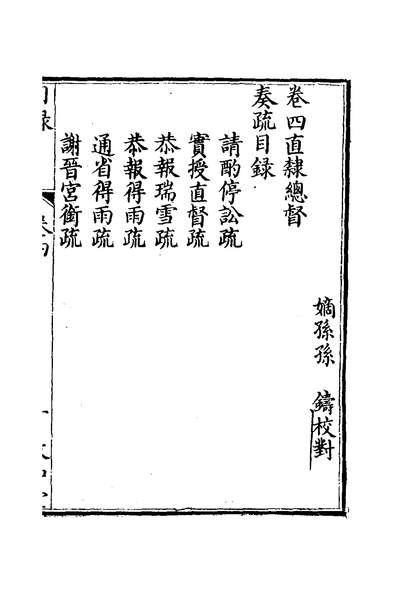 嫡孫孫　鑄校對
卷四直隸總督
奏疏目録
請酌停訟疏
實授直督疏
恭報瑞雪疏
恭報得雨疏
通省得雨疏
謝晉宮銜疏
目録　卷四